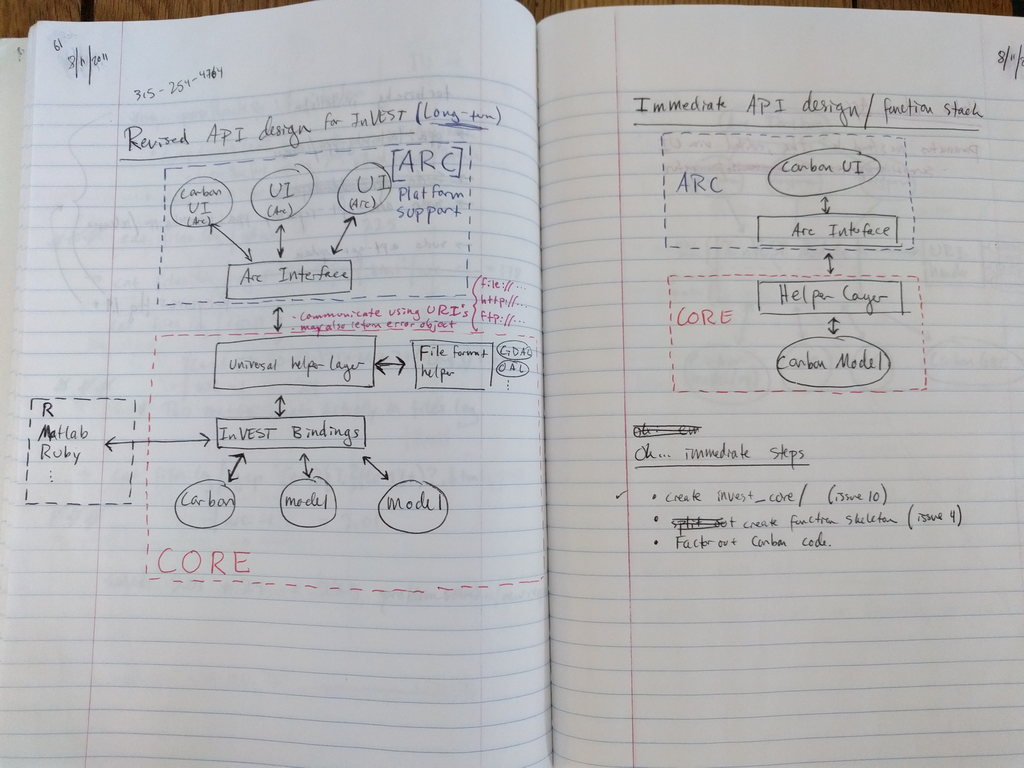 61
8/11/2011
315-254-4764
Revised API design for InVEST (Long-term)
[ARC]
Platform
support
Carbon
UI
(Arc)
UI
(Arc)
UI
(Arc)
Arc Interface
• communicate using URI's
• may also return error object
file://...
http://...
ftp://...
Universal helper layer
File format
helper
GDAL
OAL
⋮
R
Matlab
Ruby
⋮
InVEST Bindings
Carbon
model
Model
CORE
8/11/2
Immediate API design/function stack
ARC
Carbon UI
Arc Interface
CORE
Helper Layer
Carbon Model
Ok... immediate steps
✓ • create invest_core/ (issue 10)
• create function skeleton (issue 4)
• Factor out Carbon code.